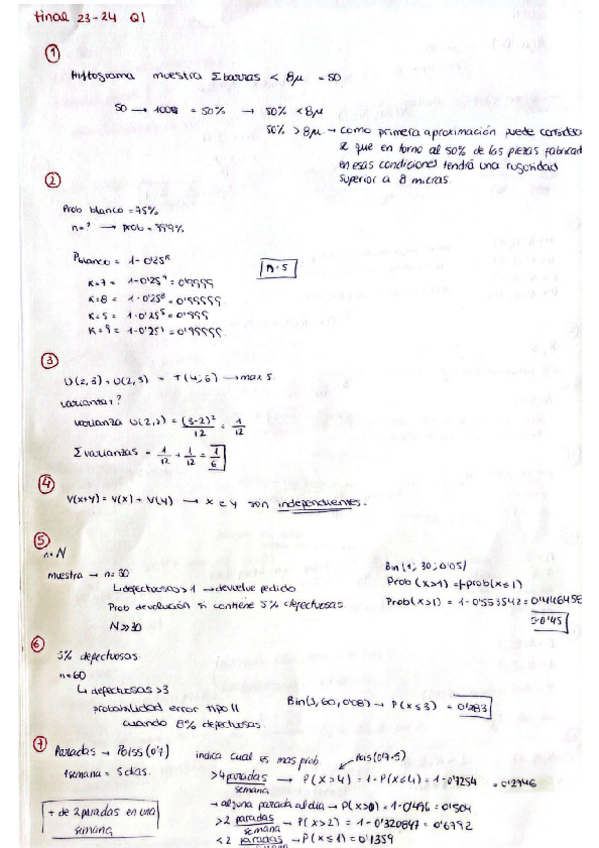 Final 23-24 Q1
①
Histograma muestra Σbarras < 8μ = 50
50 → 100% = 50% → 50% < 8μ
50% > 8μ → como primera aproximación puede considera
se que en torno al 50% de las piezas fabricad
en esas condiciones tendrá una rugosidad
superior a 8 micras.
②
Prob blanco = 75%
n=? → prob = 99'9%
Pblanco = 1-0'25ᴷ
n=5
K=7 = 1-0'25⁷ = 0'9999
K=8 = 1-0'25⁸ = 0'99999.
K=5 = 1-0'25⁵ = 0'999
K=9 = 1-0'25⁹ = 0'99999.
③
U(2,3) + U(2,3) = T(4,6) → max 5.
varianza?
varianza U(2,3) = (3-2)²/12 = 1/12
Σ varianzas = 1/12 + 1/12 = 1/6
④
V(x+y) = V(x) + V(y) → x e y son independientes.
⑤
n=N
muestra → n=30
↳ defectuosas > 1 → devuelve pedido
Prob devolución si contiene 5% defectuosas.
N >> 30
Bin(1; 30; 0'05)
Prob(x>1) = 1-prob(x≤1)
Prob(x>1) = 1-0'553542 = 0'446458
≃0'45
⑥
3% defectuosas
n=60
↳ defectuosas >3
probabilidad error tipo II
cuando 8% defectuosas.
Bin(3, 60, 0'08) → P(x≤3) = 0'283
⑦
Paradas → Poiss(0'7) indica cual es mas prob.
Pois(0'7·5)
1 semana = 5 dias.
>4 paradas/semana → P(x>4) = 1-P(x≤4) = 1-0'7254 = 0'2746
→ alguna parada al dia → P(x>0) = 1-0'496 = 0'504
>2 paradas/semana → P(x>2) = 1-0'320847 = 0'6792
<2 paradas/semana → P(x≤1) = 0'1359
+ de 2 paradas en una
semana